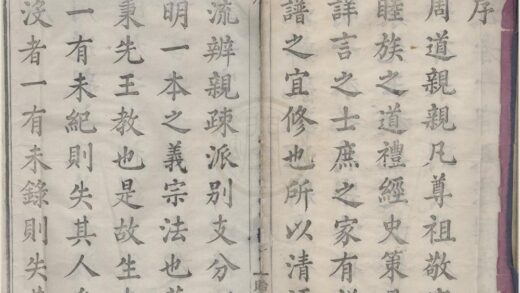 序
周道親親凡尊祖敬
睦族之道禮經史策
詳言之士庶之家有
譜之宜修也所以清
流辨親疎派別支分
明一本之義宗法也
秉先王教也是故生
一有未紀則失其人
沒者一有未錄則失